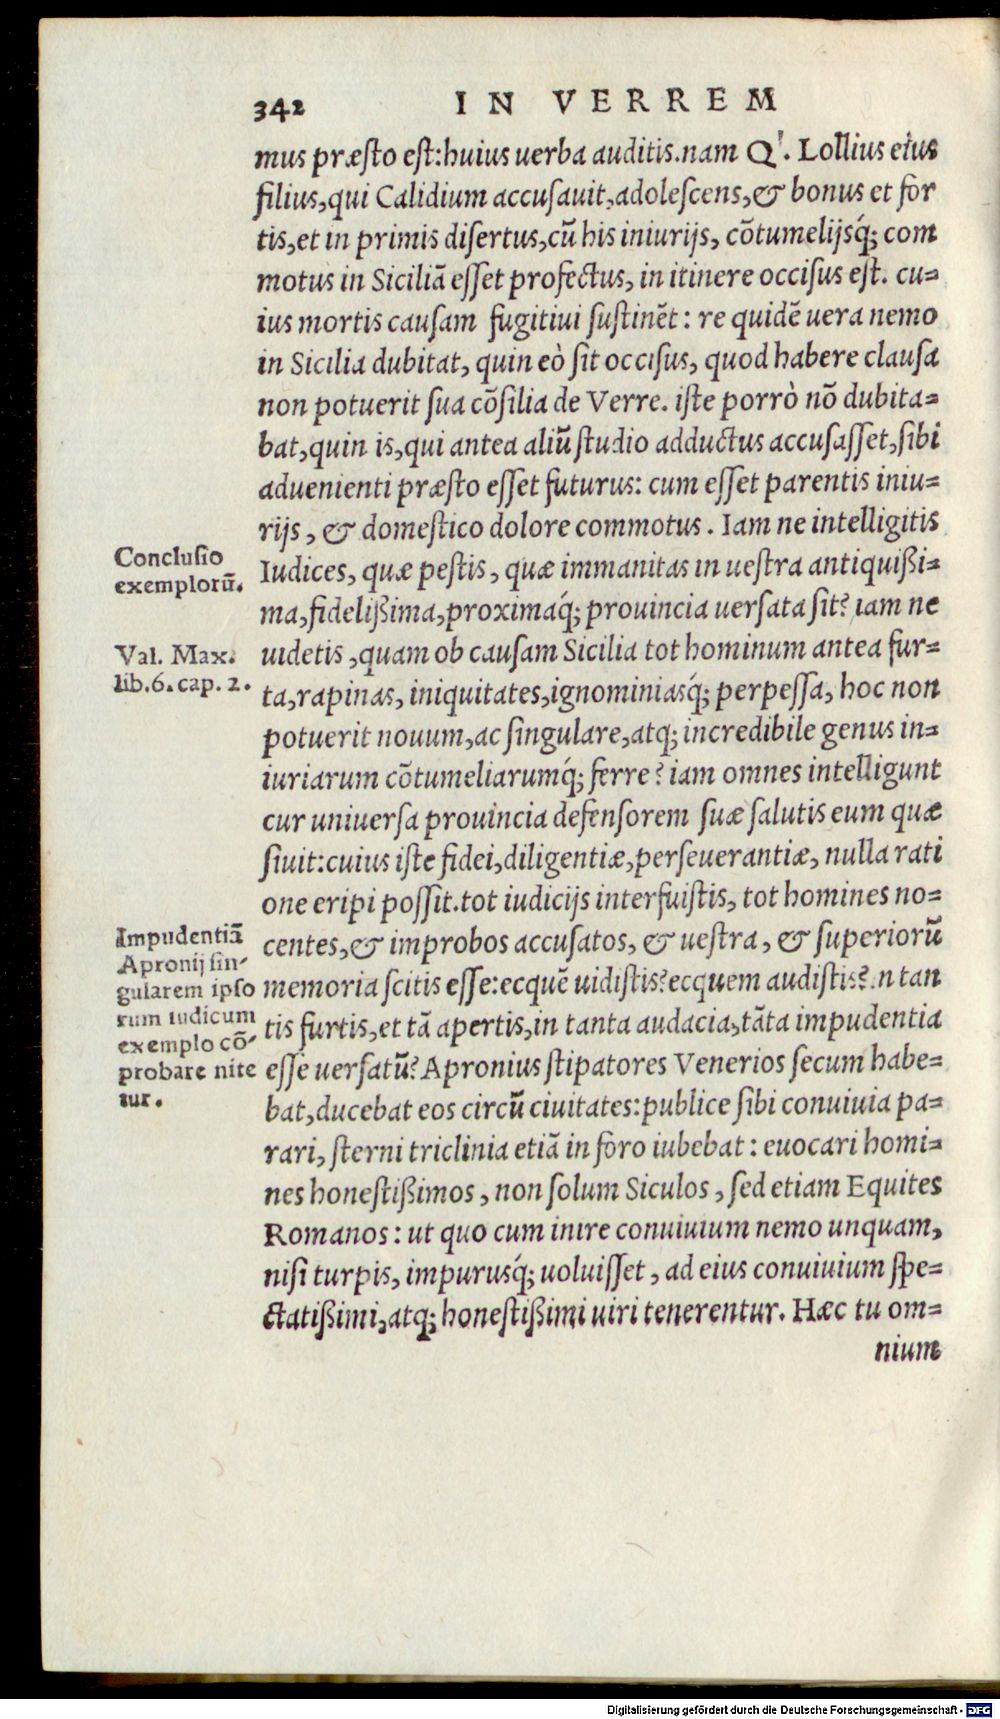 342 IN VERREM
mus præsto est:huius uerba auditis.nam Q'. Lollius eius
filius,qui Calidium accusauit,adolescens,& bonus et for
tis,et in primis disertus,cũ his iniurijs, cõtumelijsq́; com
motus in Siciliã esset profectus, in itinere occisus est. cu=
ius mortis causam fugitiui sustinẽt: re quidẽ uera nemo
in Sicilia dubitat, quin eò sit occisus, quod habere clausa
non potuerit sua cõsilia de Verre. iste porrò nõ dubita=
bat,quin is,qui antea aliũ studio adductus accusasset,sibi
aduenienti præsto esset futurus: cum esset parentis iniu=
rijs, & domestico dolore commotus. Iam ne intelligitis
Conclusio
exemplorũ.
Iudices, quæ pestis, quæ immanitas in uestra antiquißi=
ma,fidelißima,proximaq́; prouincia uersata sit? iam ne
Val. Max.
lib.6.cap.2.
uidetis,quam ob causam Sicilia tot hominum antea fur=
ta,rapinas, iniquitates,ignominiasq́; perpessa, hoc non
potuerit nouum,ac singulare,atq; incredibile genus in=
iuriarum cõtumeliarumq́; ferre? iam omnes intelligunt
cur uniuersa prouincia defensorem suæ salutis eum quæ
siuit:cuius iste fidei,diligentiæ,perseuerantiæ, nulla rati
one eripi possit.tot iudicijs interfuistis, tot homines no=
Impudentiã
Apronij sin-
gularem ipso
rum iudicum
exemplo cõ-
probare nite
tur.
centes,& improbos accusatos, & uestra, & superiorũ
memoria scitis esse:ecquẽ uidistis?ecquem audistis? in tan
tis furtis,et tã apertis,in tanta audacia,tãta impudentia
esse uersatũ? Apronius stipatores Venerios secum habe=
bat,ducebat eos circũ ciuitates:publice sibi conuiuia pa=
rari, sterni triclinia etiã in foro iubebat: euocari homi=
nes honestißimos, non solum Siculos, sed etiam Equites
Romanos: ut quo cum inire conuiuium nemo unquam,
nisi turpis, impurusq́; uoluisset, ad eius conuiuium spe=
ctatißimi,atq; honestißimi uiri tenerentur. Hæc tu om=
nium
Digitalisierung gefördert durch die Deutsche Forschungsgemeinschaft - DFG